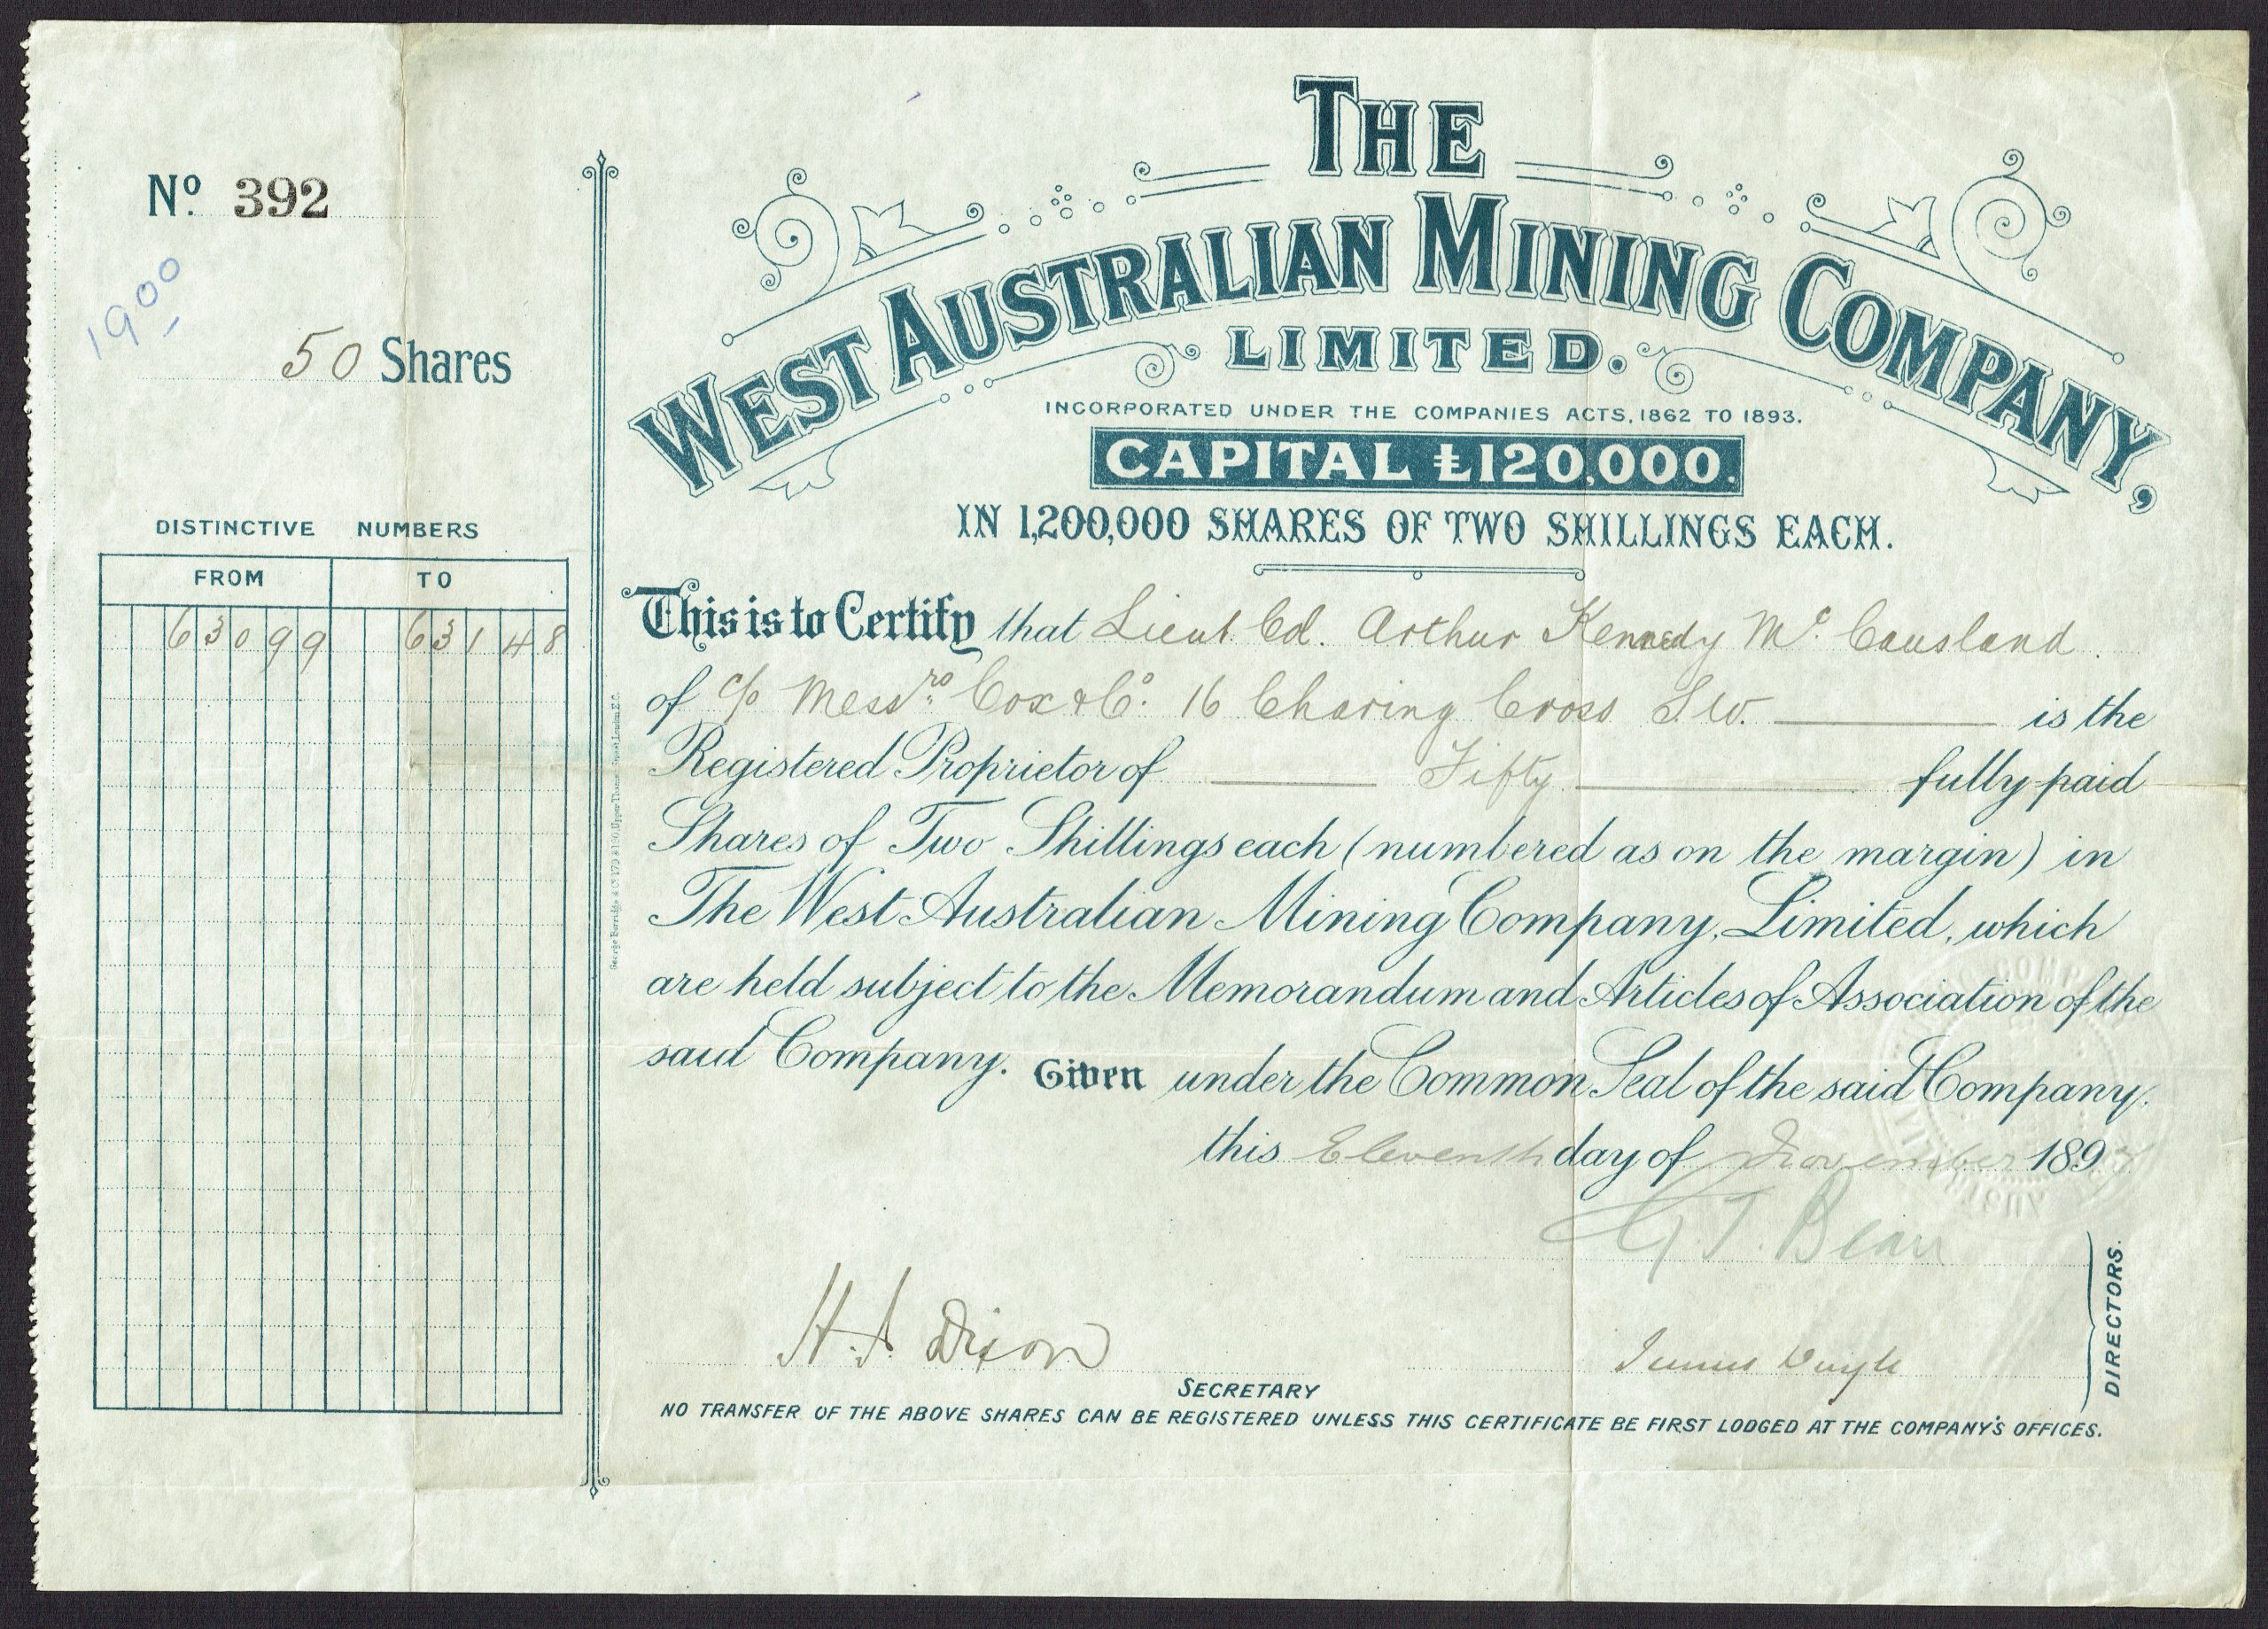 Nº 392
1900
50 Shares
DISTINCTIVE NUMBERS
FROM TO
63099 63148
THE
WEST AUSTRALIAN MINING COMPANY,
LIMITED.
INCORPORATED UNDER THE COMPANIES ACTS, 1862 TO 1893.
CAPITAL £120,000.
IN 1,200,000 SHARES OF TWO SHILLINGS EACH.
This is to Certify that Lieut. Col. Arthur Kennedy Mc. Causland
of c/o Messrs. Cox & Co. 16 Charing Cross S.W. is the
Registered Proprietor of Fifty fully paid
Shares of Two Shillings each (numbered as on the margin) in
The West Australian Mining Company, Limited, which
are held subject to the Memorandum and Articles of Association of the
said Company. Given under the Common Seal of the said Company,
this Eleventh day of November 189
H. A. Dixon
SECRETARY
DIRECTORS.
NO TRANSFER OF THE ABOVE SHARES CAN BE REGISTERED UNLESS THIS CERTIFICATE BE FIRST LODGED AT THE COMPANY'S OFFICES.